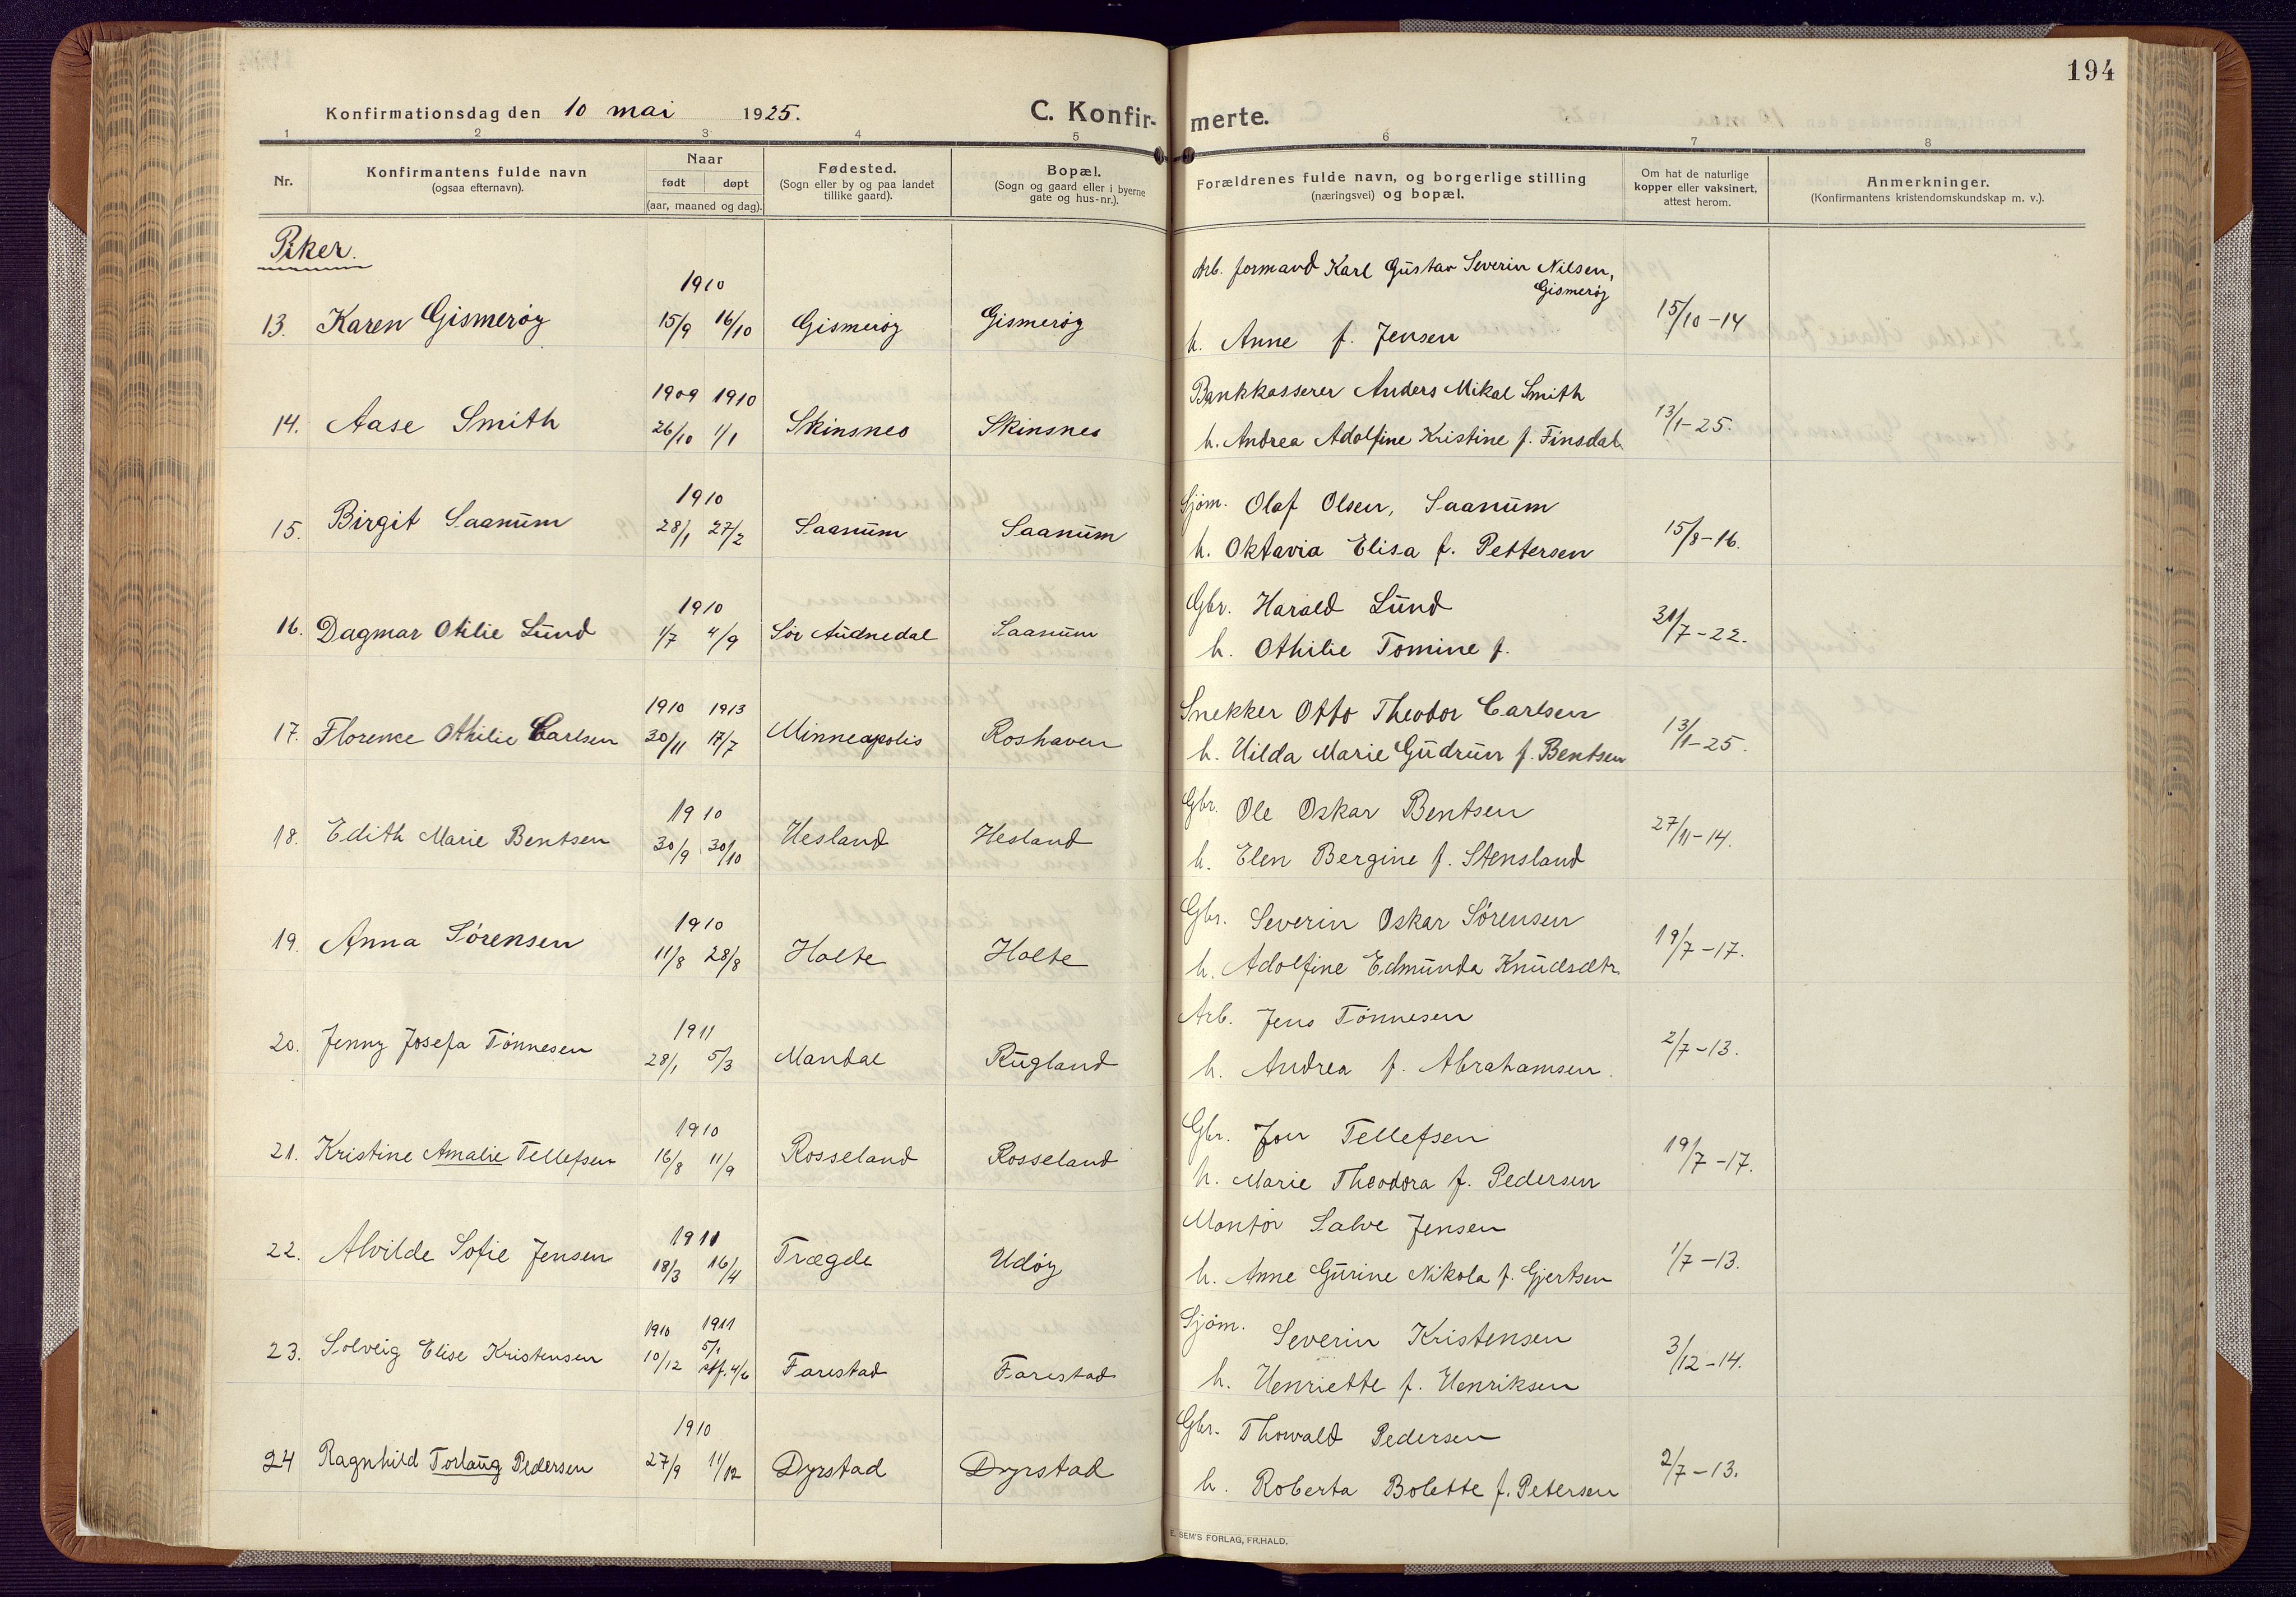 194
Konfirmationsdag den 10 mai 1925. C. Konfir- merte.
1 2 3 4 5 6 7 8
Nr. Konfirmantens fulde navn (ogsaa efternavn). Naar født døpt (aar, maaned og dag). Fødested. (Sogn eller by og paa landet tillike gaard). Bopæl. (Sogn og gaard eller i byerne gate og hus-nr.). Forældrenes fulde navn, og borgerlige stilling (næringsvei) og bopæl. Om hat de naturlige kopper eller vaksinert, attest herom. Anmerkninger. (Konfirmantens kristendomskundskap m. v.).
Piker.
1910 Arb. formand Karl Gustav Severin Nilsen, Gismerøy
13. Karen Gismerøy 15/9 16/10 Gismerøy Gismerøy 15/10-14
h. Anne f. Jensen
1909 1910 Bankkasserer Anders Mikal Smith
14. Aase Smith 26/10 1/1 Skinsnes Skinsnes 13/1-25.
h. Andrea Adolfine Kristine f. Finsdal
1910 Sjøm. Olaf Olsen, Saanum
15. Birgit Saanum 28/1 27/2 Saanum Saanum 15/8-16.
h. Oktavia Elisa f. Pettersen
1910 Gbr. Harald Lund
16. Dagmar Otilie Lund 1/7 4/9 Sør Audnedal Saanum 31/7-22.
h. Othilie Tomine f.
1910 1913 Snekker Otto Theodor Carlsen
17. Florence Othilie Carlsen 30/11 17/7 Minneapolis Roshaven 13/1-25.
h. Hilda Marie Gudrun f. Bentsen
1910 Gbr. Ole Oskar Bentsen
18. Edith Marie Bentsen 30/9 30/10 Hesland Hesland 27/11-14.
h. Elen Bergine f. Stensland
1910 Gbr. Severin Oskar Sørensen
19. Anna Sørensen 11/8 28/8 Holte Holte 19/7-17.
h. Adolfine Edmunda Knudsdtr
1911 Arb. Jens Tønnesen
20. Jenny Josefa Tønnesen 28/1 5/3 Mandal Rugland 2/7-13.
h. Andrea f. Abrahamsen.
1910 Gbr. Jon Tellefsen
21. Kristine Amalie Tellefsen 16/8 11/9 Rosseland Rosseland 19/7-17.
h. Marie Theodora f. Pedersen
1911 Montør Salve Jensen
22. Alvilde Sofie Jensen 18/3 16/4 Trægde Udøy 1/7-13.
h. Anne Gurine Nikola f. Gjertsen
1910 1911 Sjøm. Severin Kristensen
23. Solveig Elise Kristensen 10/12 5/1 stf. 4/6 Farestad Farestad 3/12-14.
h. Henriette f. Henriksen
1910 Gbr. Thorvald Pedersen
24 Ragnhild Torlaug Pedersen 27/9 11/12 Dyrstad Dyrstad 2/7-13.
h. Roberta Bolette f. Petersen
E. SEM'S FORLAG, FR.HALD.